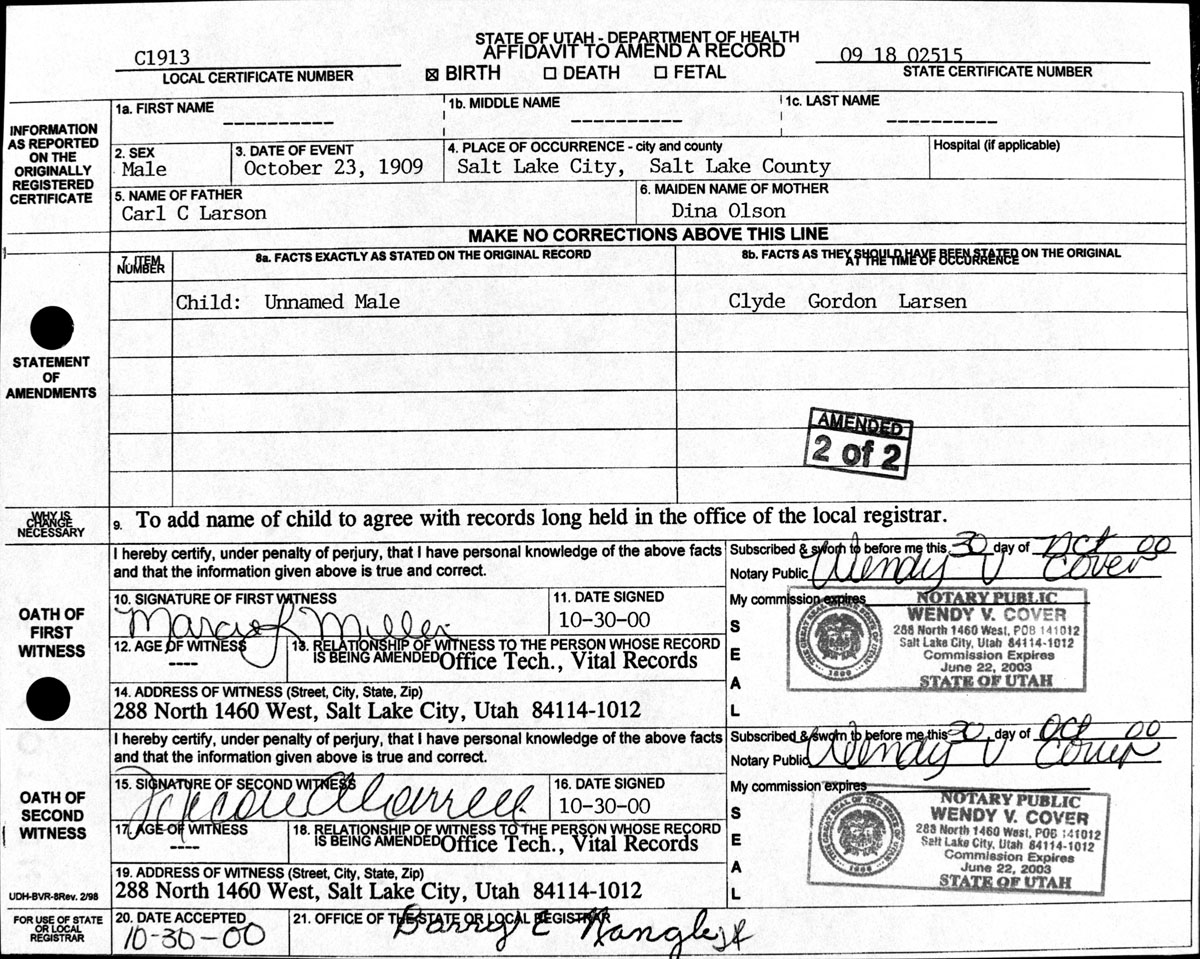 STATE OF UTAH - DEPARTMENT OF HEALTH
AFFIDAVIT TO AMEND A RECORD
C1913
LOCAL CERTIFICATE NUMBER
☒ BIRTH ☐ DEATH ☐ FETAL
09 18 02515
STATE CERTIFICATE NUMBER
INFORMATION AS REPORTED ON THE ORIGINALLY REGISTERED CERTIFICATE
1a. FIRST NAME
----------
1b. MIDDLE NAME
----------
1c. LAST NAME
----------
2. SEX
Male
3. DATE OF EVENT
October 23, 1909
4. PLACE OF OCCURRENCE - city and county
Salt Lake City, Salt Lake County
Hospital (if applicable)
5. NAME OF FATHER
Carl C Larson
6. MAIDEN NAME OF MOTHER
Dina Olson
MAKE NO CORRECTIONS ABOVE THIS LINE
STATEMENT OF AMENDMENTS
7. ITEM NUMBER
8a. FACTS EXACTLY AS STATED ON THE ORIGINAL RECORD
8b. FACTS AS THEY SHOULD HAVE BEEN STATED ON THE ORIGINAL AT THE TIME OF OCCURRENCE
Child: Unnamed Male
Clyde Gordon Larsen
AMENDED
2 of 2
WHY IS CHANGE NECESSARY
9. To add name of child to agree with records long held in the office of the local registrar.
OATH OF FIRST WITNESS
I hereby certify, under penalty of perjury, that I have personal knowledge of the above facts
and that the information given above is true and correct.
Subscribed & sworn to before me this 30 day of Oct 00
Notary Public Wendy V Cover
My commission expires
SEAL
NOTARY PUBLIC
WENDY V. COVER
288 North 1460 West, POB 141012
Salt Lake City, Utah 84114-1012
Commission Expires
June 22, 2003
STATE OF UTAH
10. SIGNATURE OF FIRST WITNESS
Miller
11. DATE SIGNED
10-30-00
12. AGE OF WITNESS
----
13. RELATIONSHIP OF WITNESS TO THE PERSON WHOSE RECORD
IS BEING AMENDED Office Tech., Vital Records
14. ADDRESS OF WITNESS (Street, City, State, Zip)
288 North 1460 West, Salt Lake City, Utah 84114-1012
OATH OF SECOND WITNESS
I hereby certify, under penalty of perjury, that I have personal knowledge of the above facts
and that the information given above is true and correct.
Subscribed & sworn to before me this 30 day of Oct 00
Notary Public Wendy V Cover
My commission expires
SEAL
NOTARY PUBLIC
WENDY V. COVER
288 North 1460 West, POB 141012
Salt Lake City, Utah 84114-1012
Commission Expires
June 22, 2003
STATE OF UTAH
15. SIGNATURE OF SECOND WITNESS
16. DATE SIGNED
10-30-00
17. AGE OF WITNESS
----
18. RELATIONSHIP OF WITNESS TO THE PERSON WHOSE RECORD
IS BEING AMENDED Office Tech., Vital Records
19. ADDRESS OF WITNESS (Street, City, State, Zip)
288 North 1460 West, Salt Lake City, Utah 84114-1012
UDH-BVR-8Rev. 2/98
FOR USE OF STATE OR LOCAL REGISTRAR
20. DATE ACCEPTED
10-30-00
21. OFFICE OF THE STATE OR LOCAL REGISTRAR
Barry E Nangle